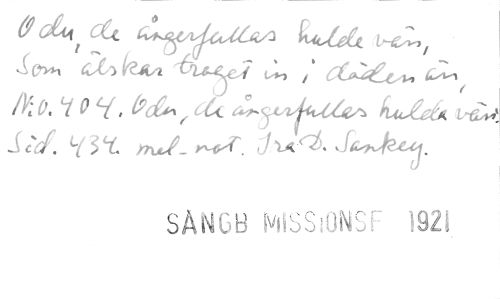 O du, de ångerfullas hulde vän,
Som älskar troget in i döden än,
N:o. 404. O du, de ångerfullas hulda vän.
Sid. 434. mel-not. Ira D. Sankey.
SÅNGB MISSIONSF 1921